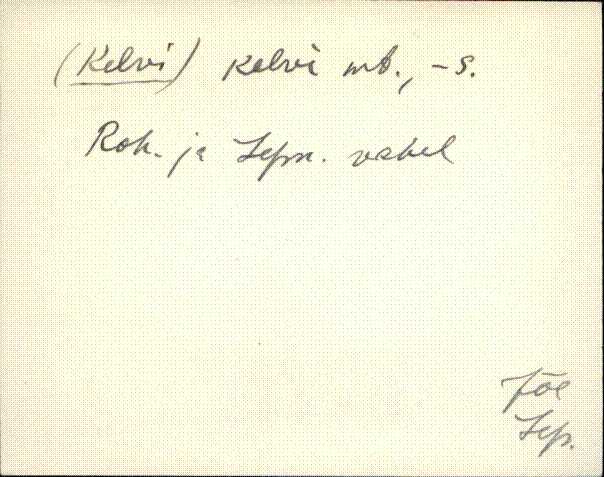 (Kelvi) Kelvi mt., -s.
Roh. ja Lepn. vahel
Jõe
Lep.